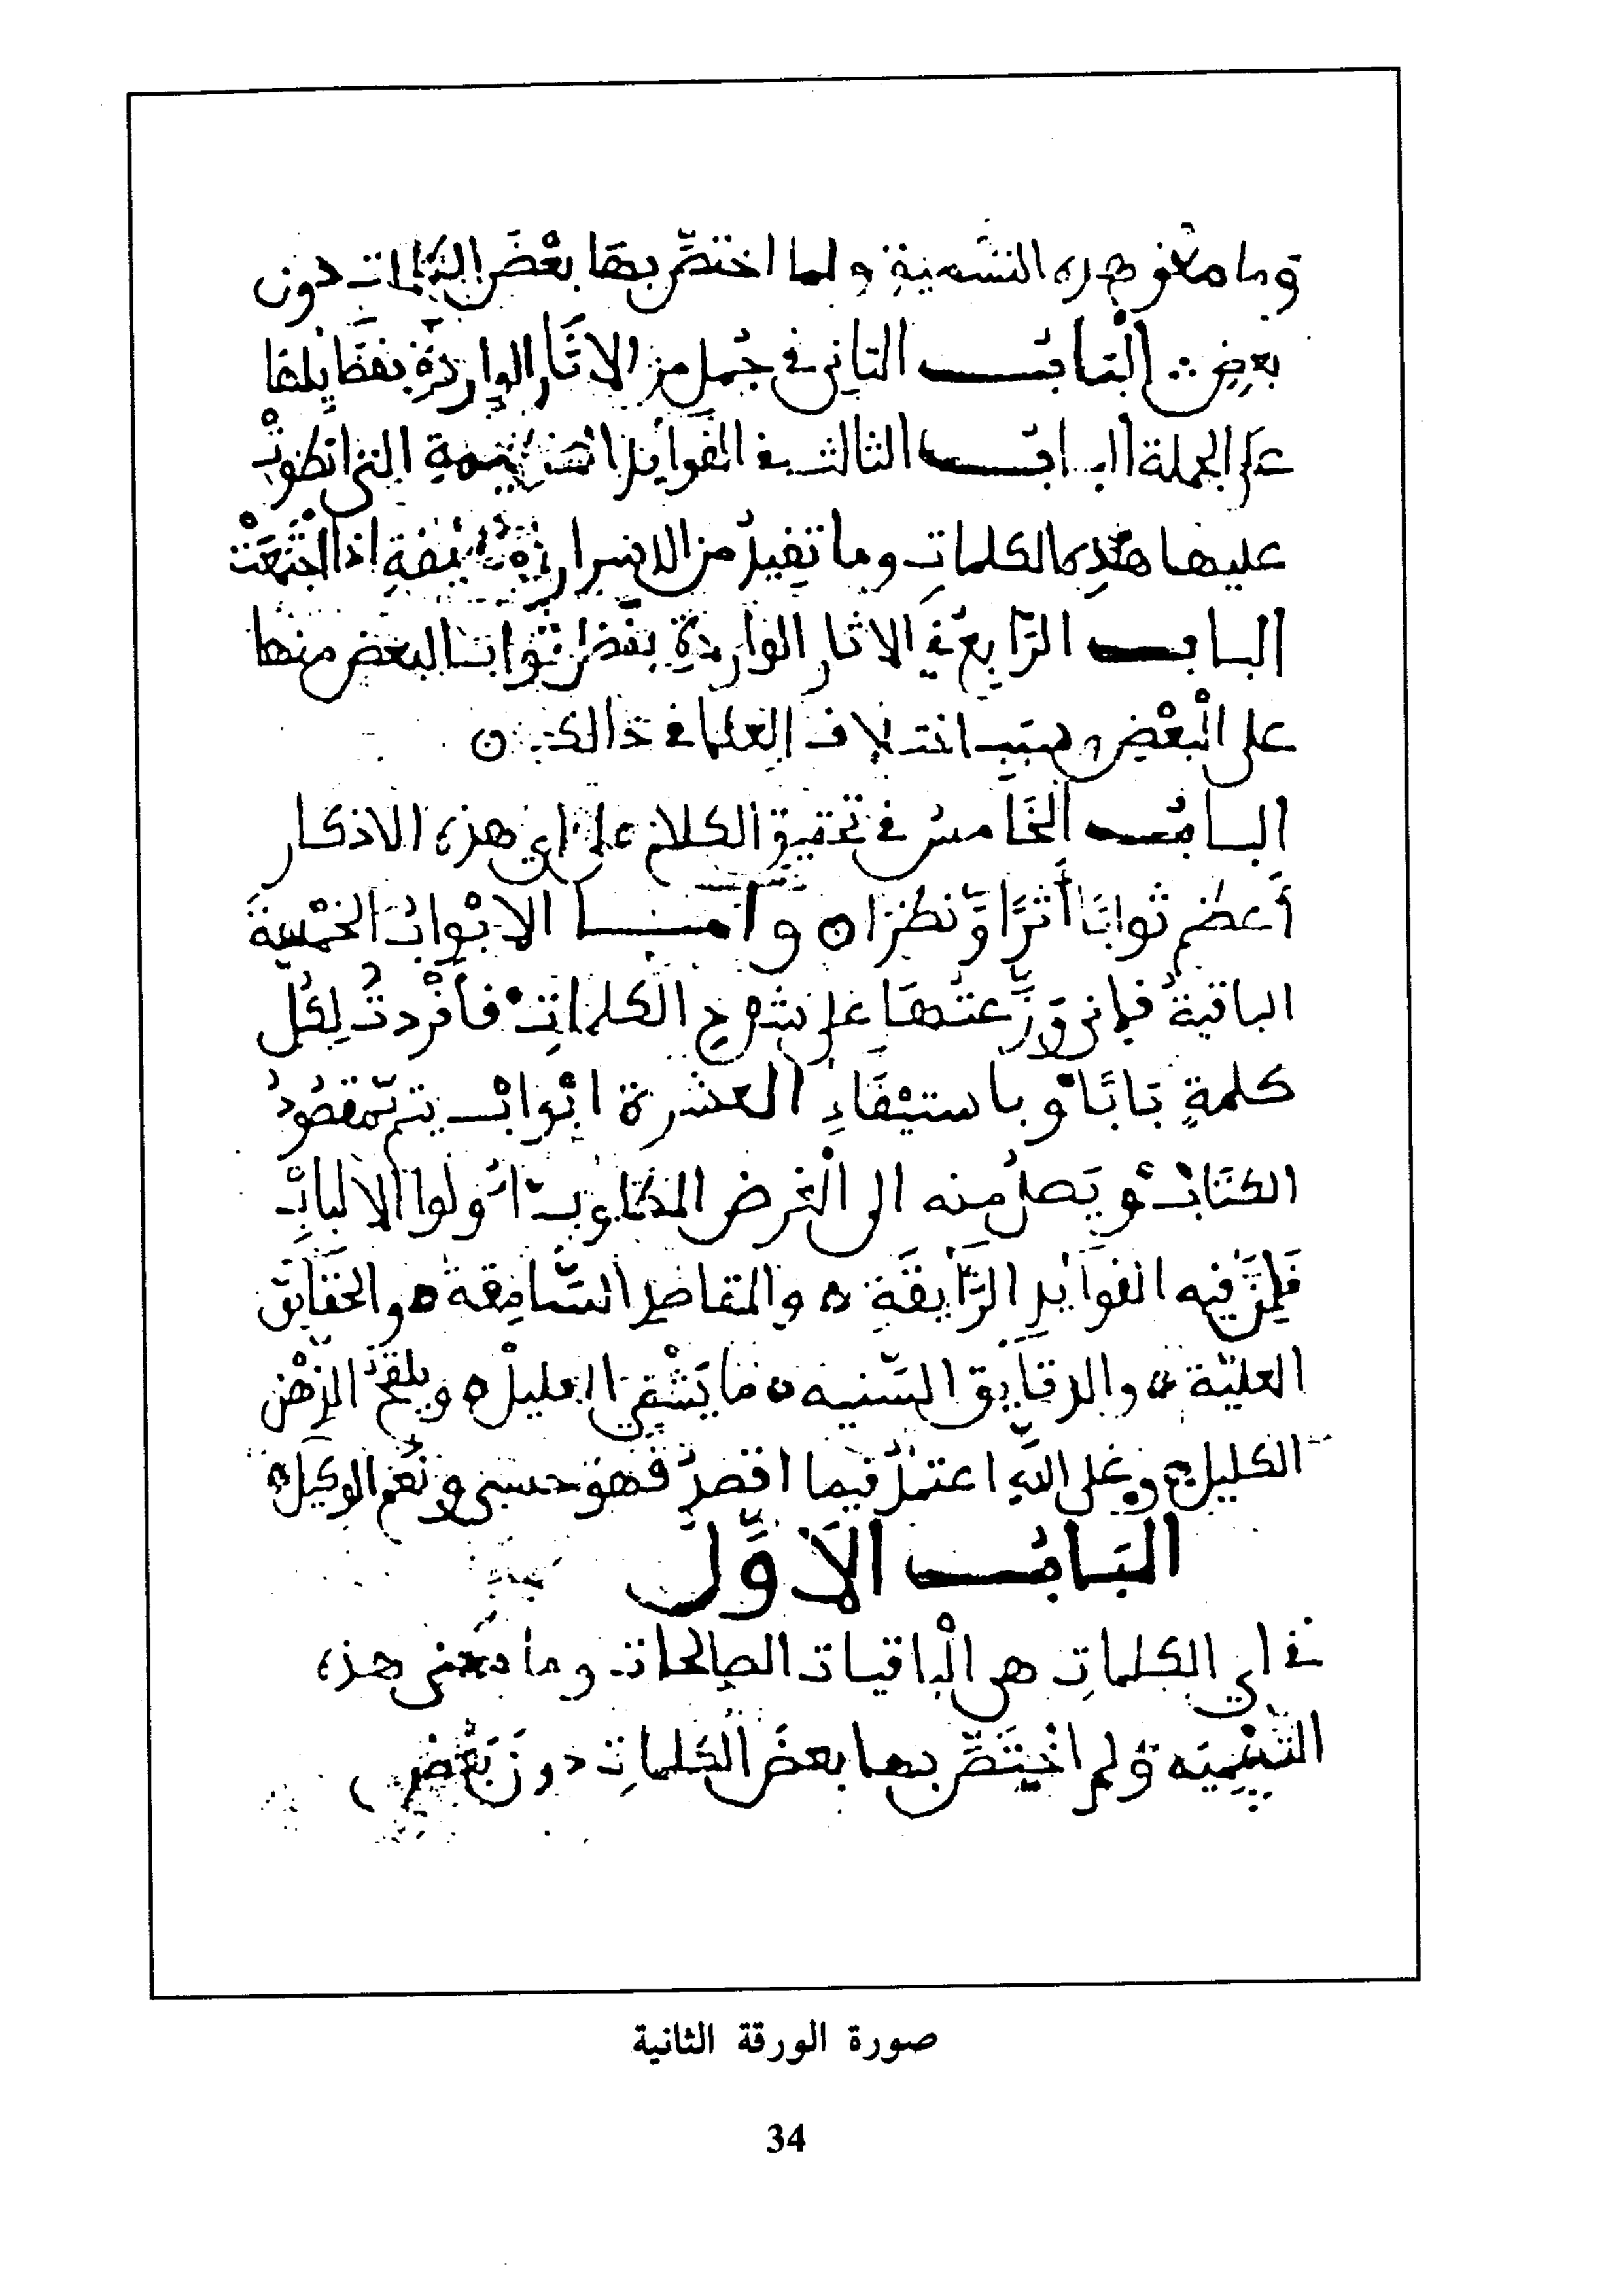 وما معنى هذه التسمية ولما اختصّ بها بعْضَ الكلمات دون
بعضٍ ∴ الْبَابُ الثاني في جُملٍ من الاثَارِ الواردةِ بفضَايلها
على الجملة البابُ الثالث في الفَوايدِ العظيمةِ التي انطَوتْ
عليها هذِه الكلماتِ وما تفيدُ من الاسرار إذا اجْتَمعَتْ
الباب الرَّابعُ في الاثار الواردةِ بفضل ثواب البعض منها
على الْبعْضِ وسبب اختلاف العلما في ذالك ن
البابُ الخَامسُ في تحقيق الكلام على اي هذه الاذكار
أَعظم ثوابًا أثرًا وَّنظرًا ن وأمَّا الابْوابُ الخمْسةَ
الباقيةُ فإني وَزّعتُهَا على شرح الكلماتِ فأفْردتُ لِكُلّ
كلمةٍ بَابًا وباستيْفَاءِ العشرة ابْوابْ يتم مقصُودُ
الكتَابْ ويَصلُ منه الى الْغرض المطلوب اُولوا الالبابْ
فَلمَنْ فيه الفوايد الرَّايقَة ه والمقاصد السَّامِقة ه والحَقَايق
العليّة ه والدقايق السّنيه ه مَا يَشْفي العليلْ ه ويلقحُ الذهْن
الكليل ه وعَلى اللهِ اعتمدُ فيما اقصدُ فَهوَ حسبى ونعْم الوكيل ه
البَابُ الأَوَّل
في اي الكلماتِ هي الْباقيات الصالحات وما معنى هذه
التسْمِيَه وَلم اخْتَصّ بها بعضَ الكلماتِ دون بَعْضٍ
صورة الورقة الثانية
34